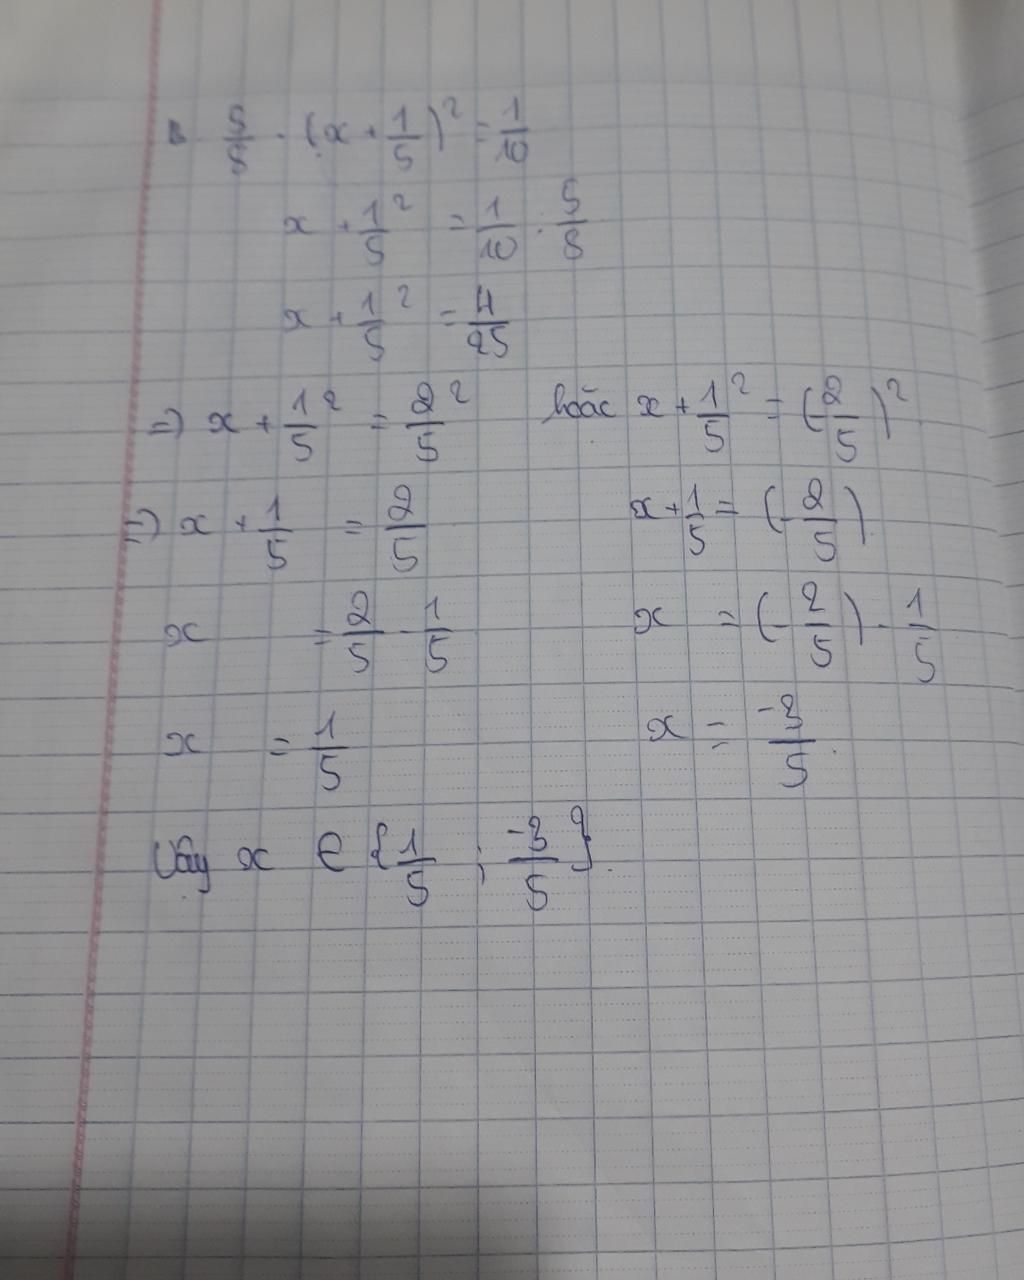 5/8 . (x + 1/5)² = 1/10
x + 1/5² = 1/10 : 5/8
x + 1/5² = 4/25
=) x + 1/5² = 2/5² hoặc x + 1/5² = (-2/5)²
=) x + 1/5 = 2/5 x + 1/5 = (-2/5)
x = 2/5 - 1/5 x = (-2/5) - 1/5
x = 1/5 x = -3/5
Vậy x ∈ {1/5 ; -3/5}.